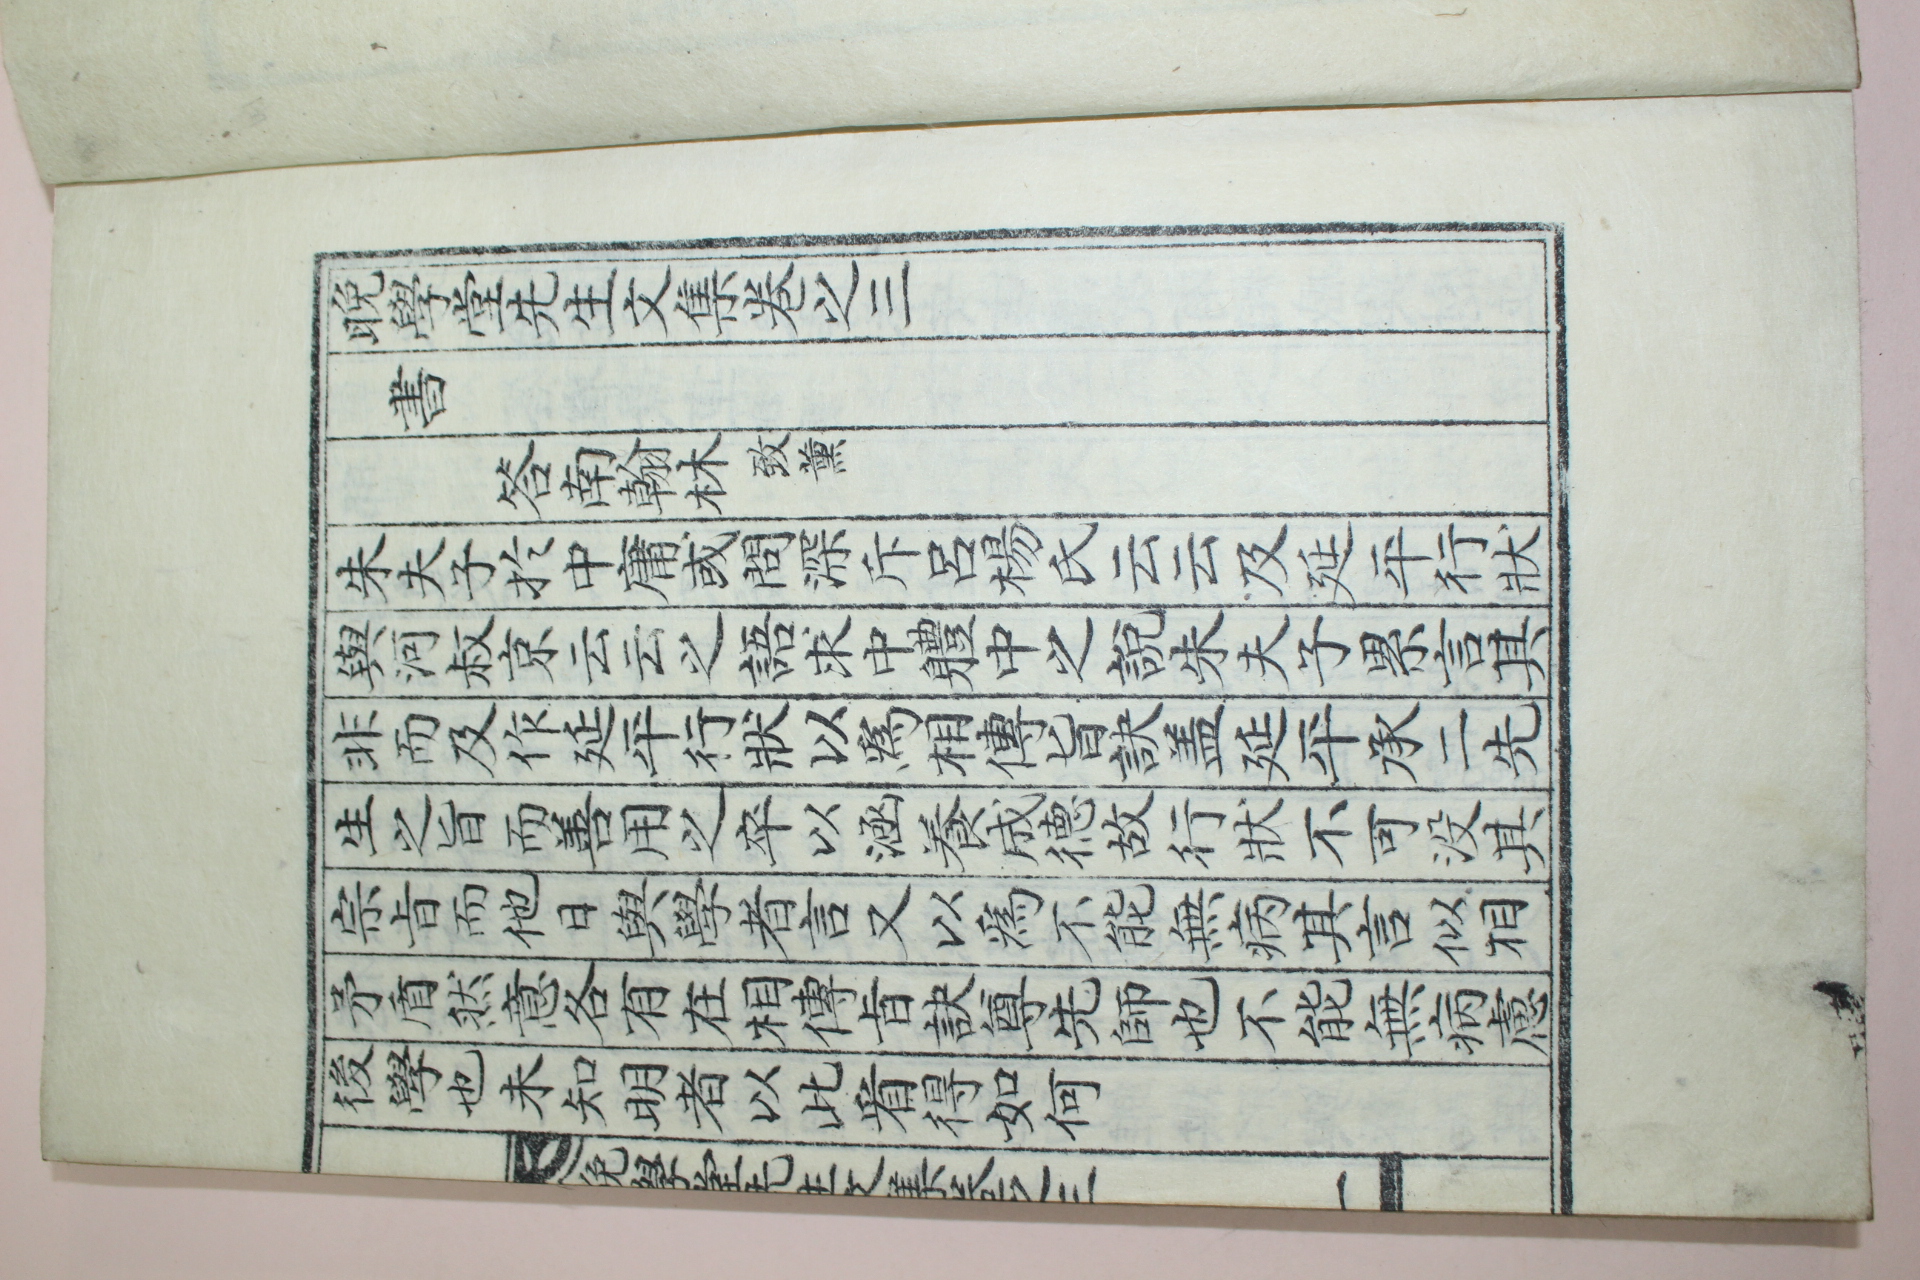 晩學堂先生文集卷之三
書
答南翰林 致薰
朱夫子扵中庸或問深斥呂楊氏云云及延平行狀
與河叔京云云之語求中軆中之說朱夫子累言其
非而及作延平行狀以爲相傳旨訣盖延平承二先
生之旨而善用之卒以涵養成德故行狀不可没其
宗旨而他日與學者言又以爲不能無病其言似相
矛盾然意各有在相傳旨訣尊先師也不能無病慮
後學也未知明者以此看得如何
晩學堂先生文集卷之三 一